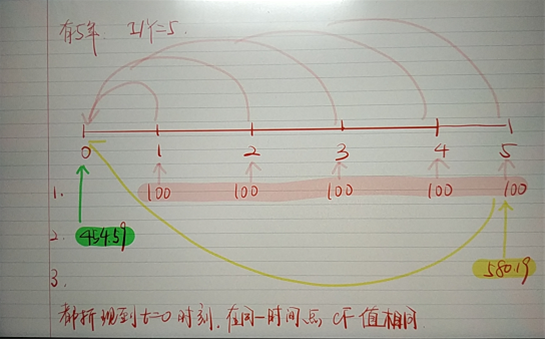 有5年. I/Y=5.
0 1 2 3 4 5
1. 100 100 100 100 100
2. 454.59
580.19
3.
都折现到t=0时刻.在同一时间点 CF 值相同.